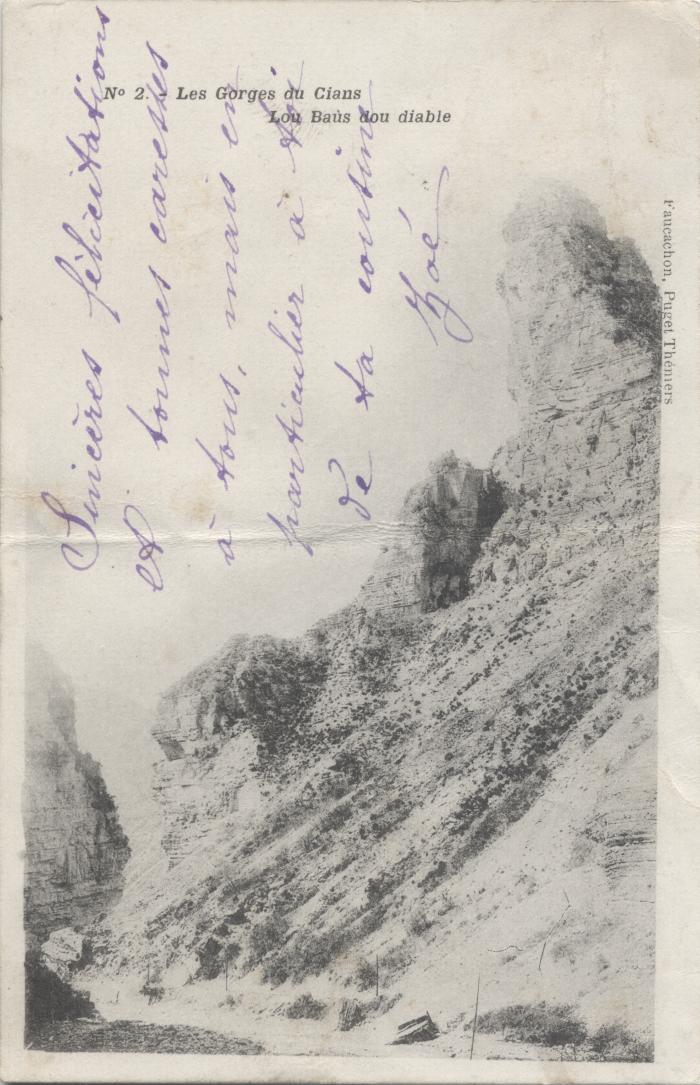 Nº 2. - Les Gorges du Cians
Lou Baùs dou diable
Faucachon, Puget Théniers
Sincères félicitations
et bonnes caresses
à tous, mais en
particulier à toi
de ta cousine
Zoé